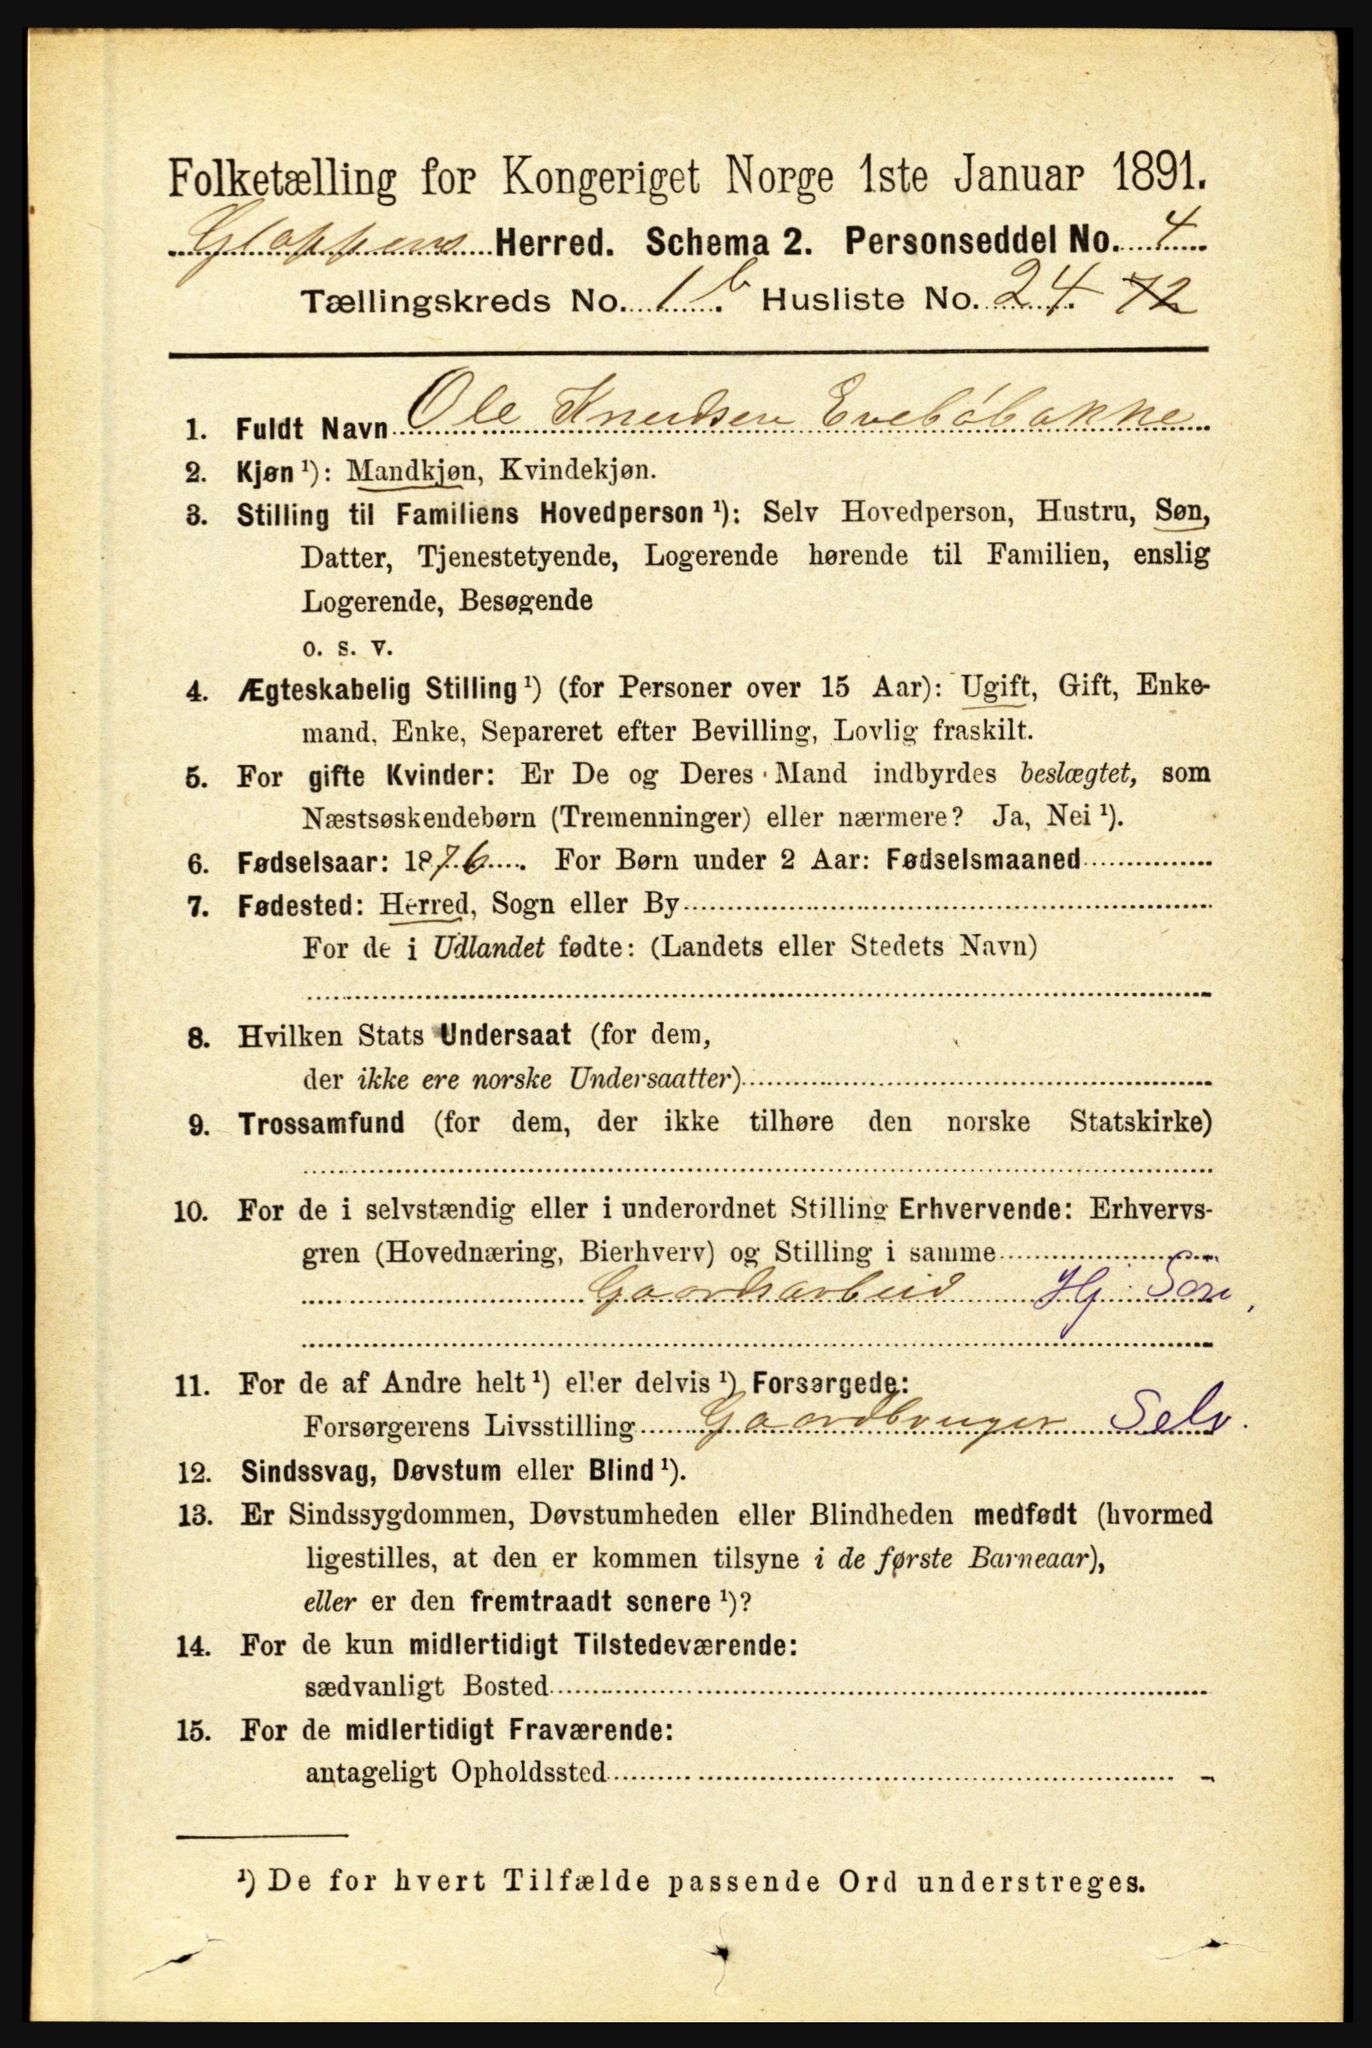 Folketælling for Kongeriget Norge 1ste Januar 1891.
Gloppens Herred. Schema 2. Personseddel No. 4
Tællingskreds No. 1 b Husliste No. 24. 72
1. Fuldt Navn Ole Knudsen Evebøbakke
2. Kjøn ¹): Mandkjøn, Kvindekjøn.
3. Stilling til Familiens Hovedperson ¹): Selv Hovedperson, Hustru, Søn,
Datter, Tjenestetyende, Logerende hørende til Familien, enslig
Logerende, Besøgende
o. s. v.
4. Ægteskabelig Stilling ¹) (for Personer over 15 Aar): Ugift, Gift, Enke-
mand, Enke, Separeret efter Bevilling, Lovlig fraskilt.
5. For gifte Kvinder: Er De og Deres Mand indbyrdes beslægtet, som
Næstsøskendebørn (Tremenninger) eller nærmere? Ja, Nei ¹).
6. Fødselsaar: 1876. For Børn under 2 Aar: Fødselsmaaned
7. Fødested: Herred, Sogn eller By
For de i Udlandet fødte: (Landets eller Stedets Navn)
8. Hvilken Stats Undersaat (for dem,
der ikke ere norske Undersaatter)
9. Trossamfund (for dem, der ikke tilhøre den norske Statskirke)
10. For de i selvstændig eller i underordnet Stilling Erhvervende: Erhvervs-
gren (Hovednæring, Bierhverv) og Stilling i samme
Gaardsarbeid Hj. Søn,
11. For de af Andre helt ¹) eller delvis ¹) Forsørgede:
Forsørgerens Livsstilling Gaardbruger Selv.
12. Sindssvag, Døvstum eller Blind ¹).
13. Er Sindssygdommen, Døvstumheden eller Blindheden medfødt (hvormed
ligestilles, at den er kommen tilsyne i de første Barneaar),
eller er den fremtraadt senere ¹)?
14. For de kun midlertidigt Tilstedeværende:
sædvanligt Bosted
15. For de midlertidigt Fraværende:
antageligt Opholdssted
¹) De for hvert Tilfælde passende Ord understreges.